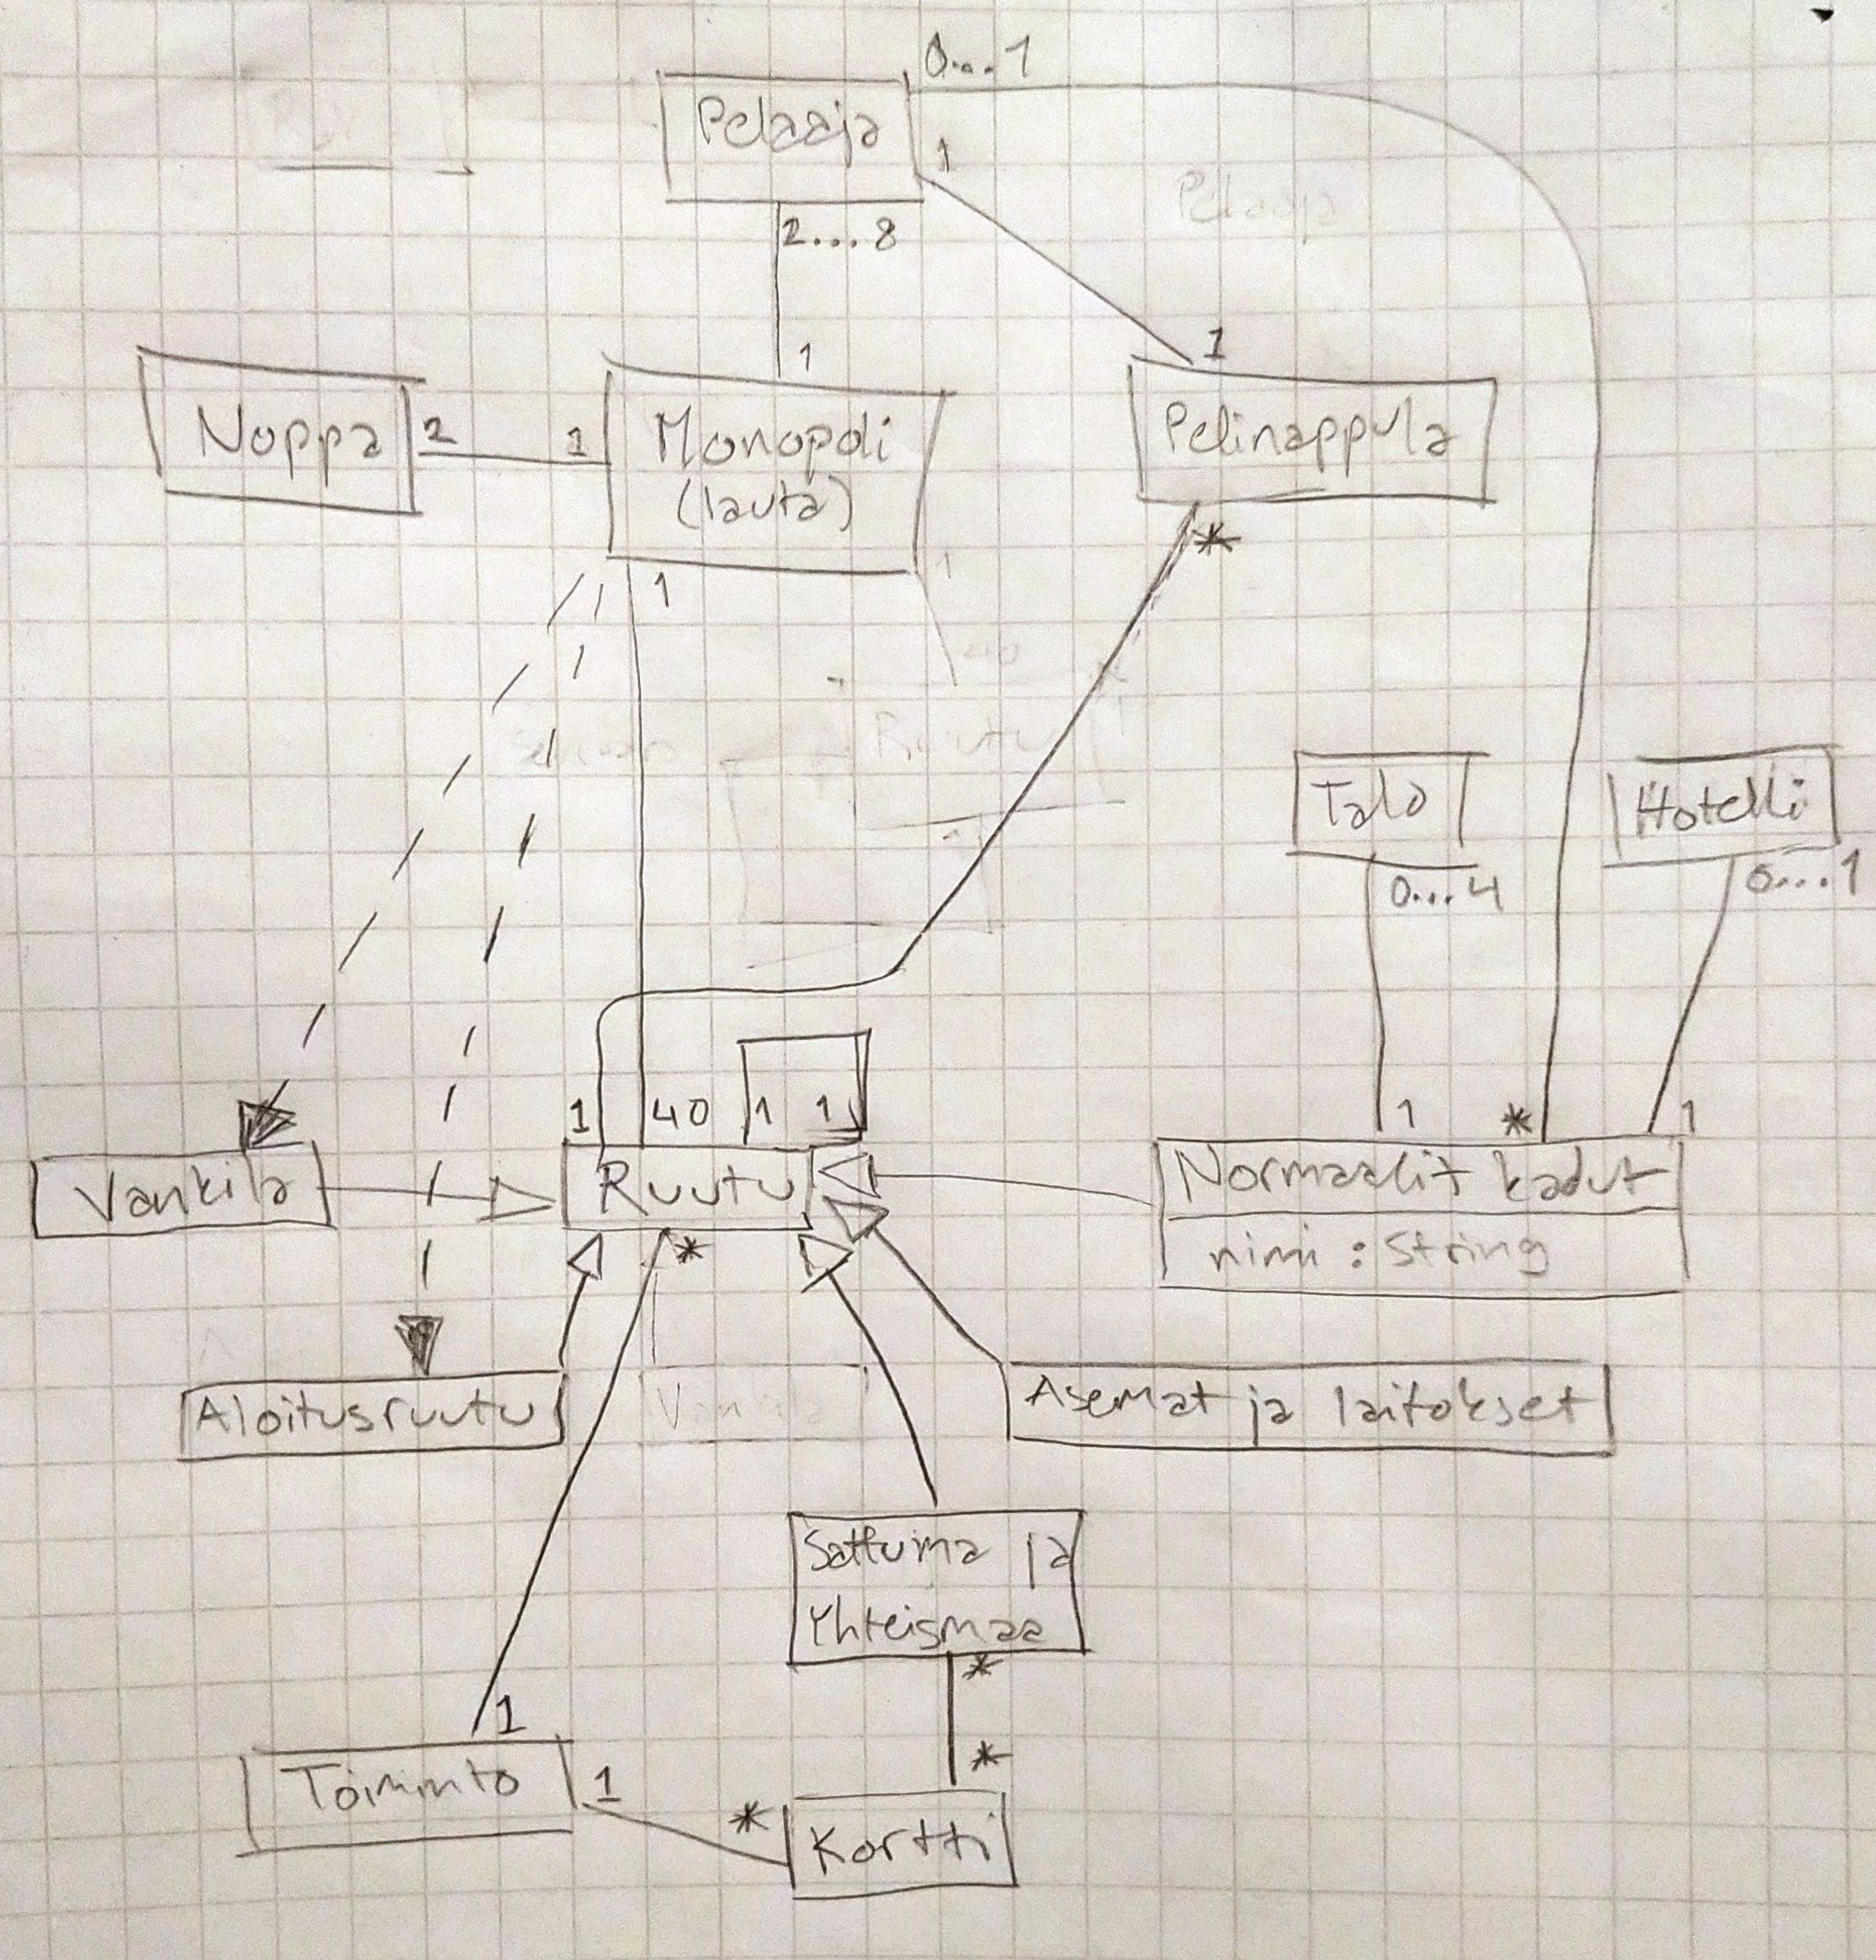 0...1
Pelaaja
1
2...8
1
1
Noppa
2
1
Monopoli
(lauta)
Pelinappula
*
1
Talo
Hotelli
0...4
0...1
1
40
1
1
1
*
1
Vankila
Ruutu
Normaalit kadut
nimi : String
*
Aloitusruutu
Asemat ja laitokset
Sattuma ja
Yhteismaa
*
1
*
Toiminto
1
*
Kortti